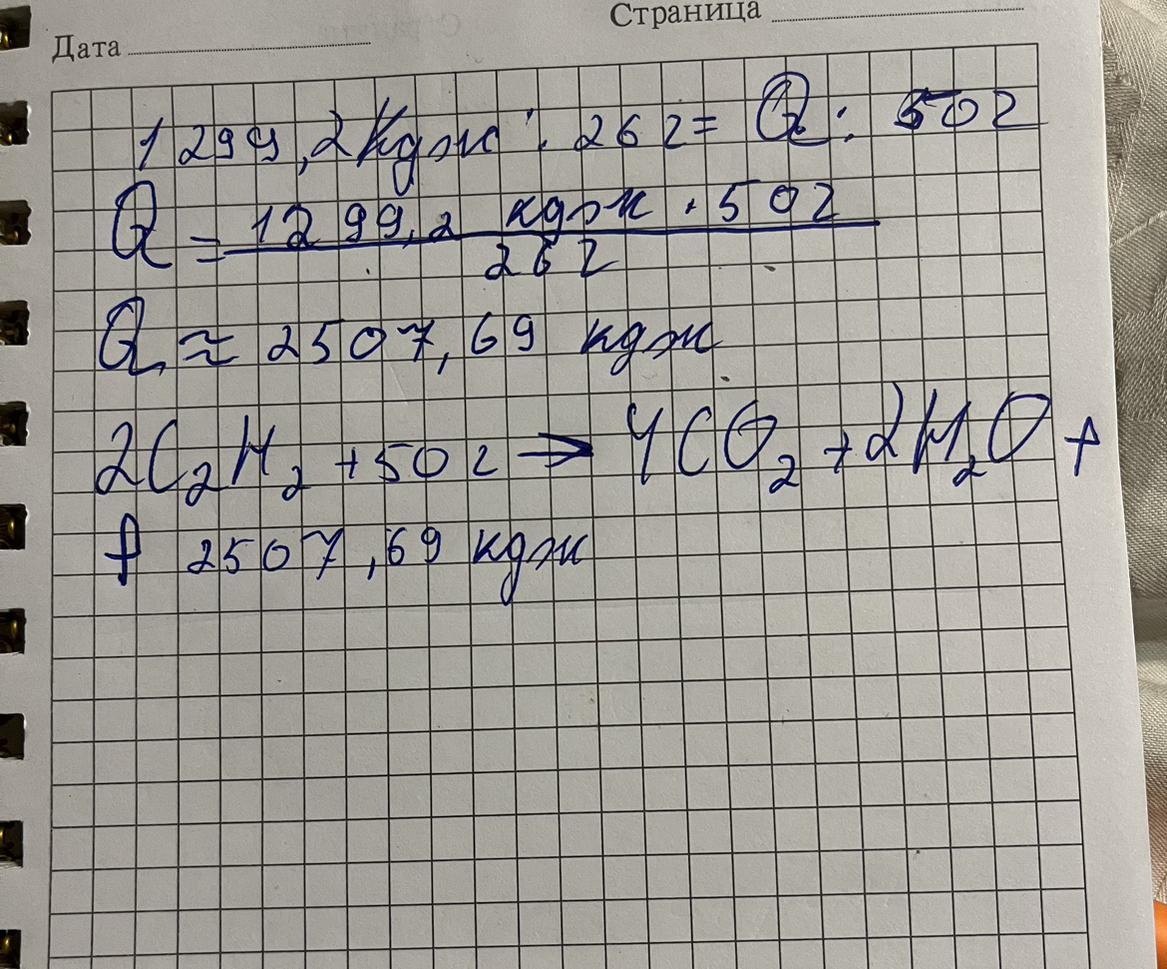 Страница
Дата
1299,2 Кдж : 26 г = Q : 50 г
Q = 1299,2 кдж · 50 г
26 г
Q ≈ 2507,69 кдж
2C₂H₂ + 5O₂ → 4CO₂ + 2H₂O +
+ 2507,69 кдж